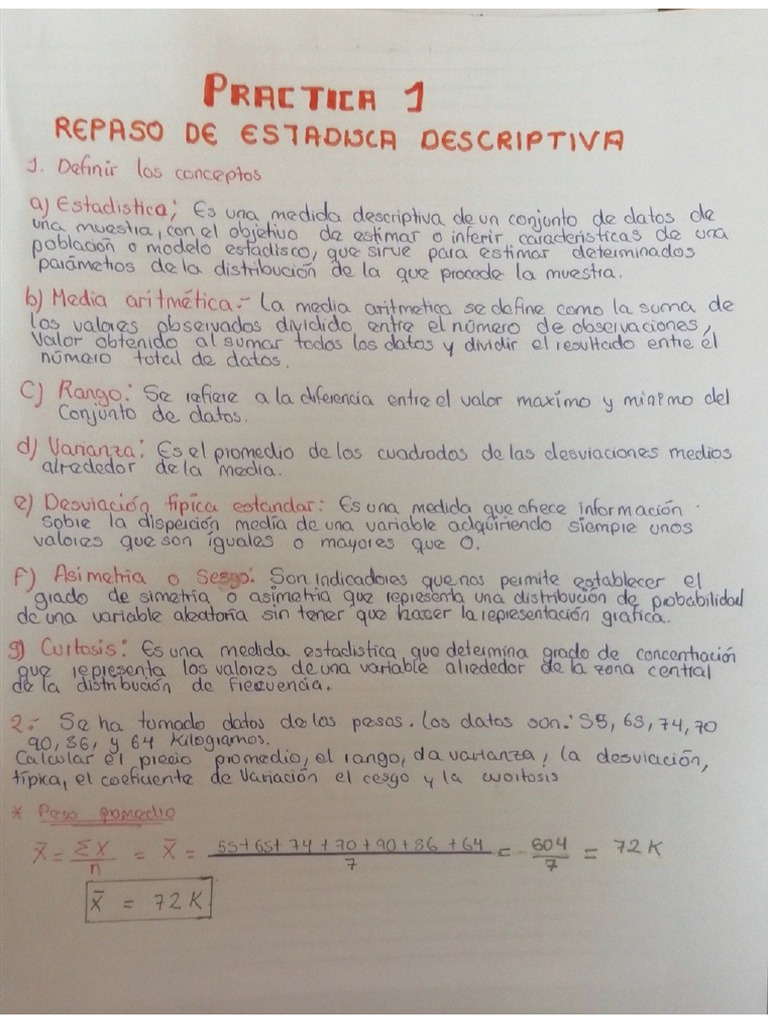 PRACTICA 1
REPASO DE ESTADISCA DESCRIPTIVA
1. Definir los conceptos
a) Estadistica; Es una medida descriptiva de un conjunto de datos de
una muestra, con el objetivo de estimar o inferir características de una
población o modelo estadisco, que sirve para estimar determinados
parámetros de la distribución de la que procede la muestra.
b) Media aritmética.- La media aritmetica se define como la suma de
los valores observados dividido entre el número de observaciones,
Valor obtenido al sumar todos los datos y dividir el resultado entre el
número total de datos.
C) Rango: Se refiere a la diferencia entre el valor maximo y minimo del
Conjunto de datos.
d) Varianza: Es el promedio de los cuadrados de las desviaciones medios
alrededor de la media.
e) Desviación tipica estandar: Es una medida que ofrece información
sobre la disperción media de una variable adquiriendo siempre unos
valores que son iguales o mayores que 0.
f) Asimetria o Sesgo: Son Indicadores que nos permite establecer el
grado de simetría o asimetría que representa una distribución de probabilidad
de una variable aleatoria sin tener que hacer la representación grafica.
g) Curtosis: Es una medida estadistica que determina grado de concentración
que representa los valores de una variable alrededor de la zona central
de la distribución de frecuencia.
2.- Se ha tomado datos de los pesos. Los datos son: 55, 65, 74, 70
90, 86, y 64 Kilogramos.
Calcular el precio promedio, el rango, da varianza, la desviación,
típica, el coeficiente de variación el cesgo y la cuortosis
* Peso promedio
X̄ = ΣX/n = X̄ = 55+65+74+70+90+86+64/7 = 504/7 = 72 K
X̄ = 72 K